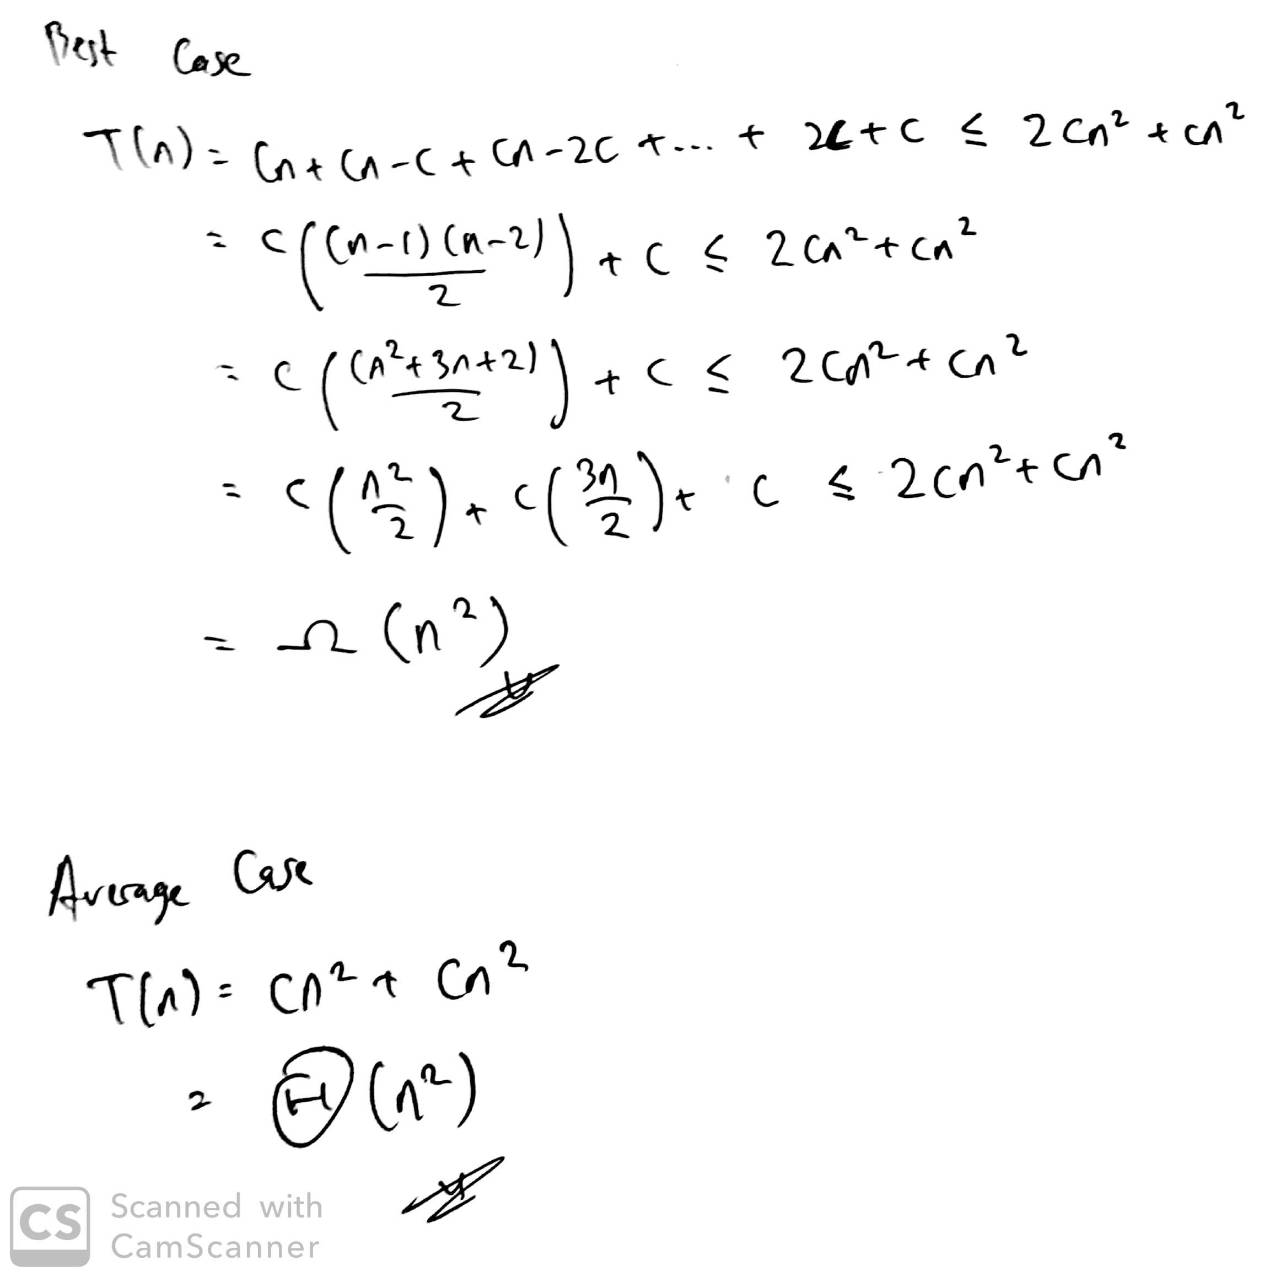 Best Case
T(n) = Cn + Cn - C + Cn - 2C + ... + 2C + C ≤ 2Cn² + Cn²
= C((n-1)(n-2))/2) + C ≤ 2Cn² + Cn²
= C((n²+3n+2))/2) + C ≤ 2Cn² + Cn²
= C(n²/2) + C(3n/2) + C ≤ 2Cn² + Cn²
= Ω(n²)
Average Case
T(n) = Cn² + Cn²
= Θ(n²)
CS Scanned with
CamScanner